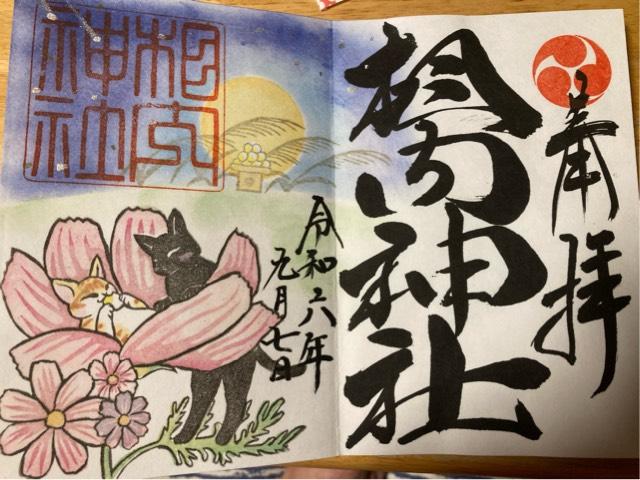 奉拝
相内神社
令和六年
九月七日
相内
神社